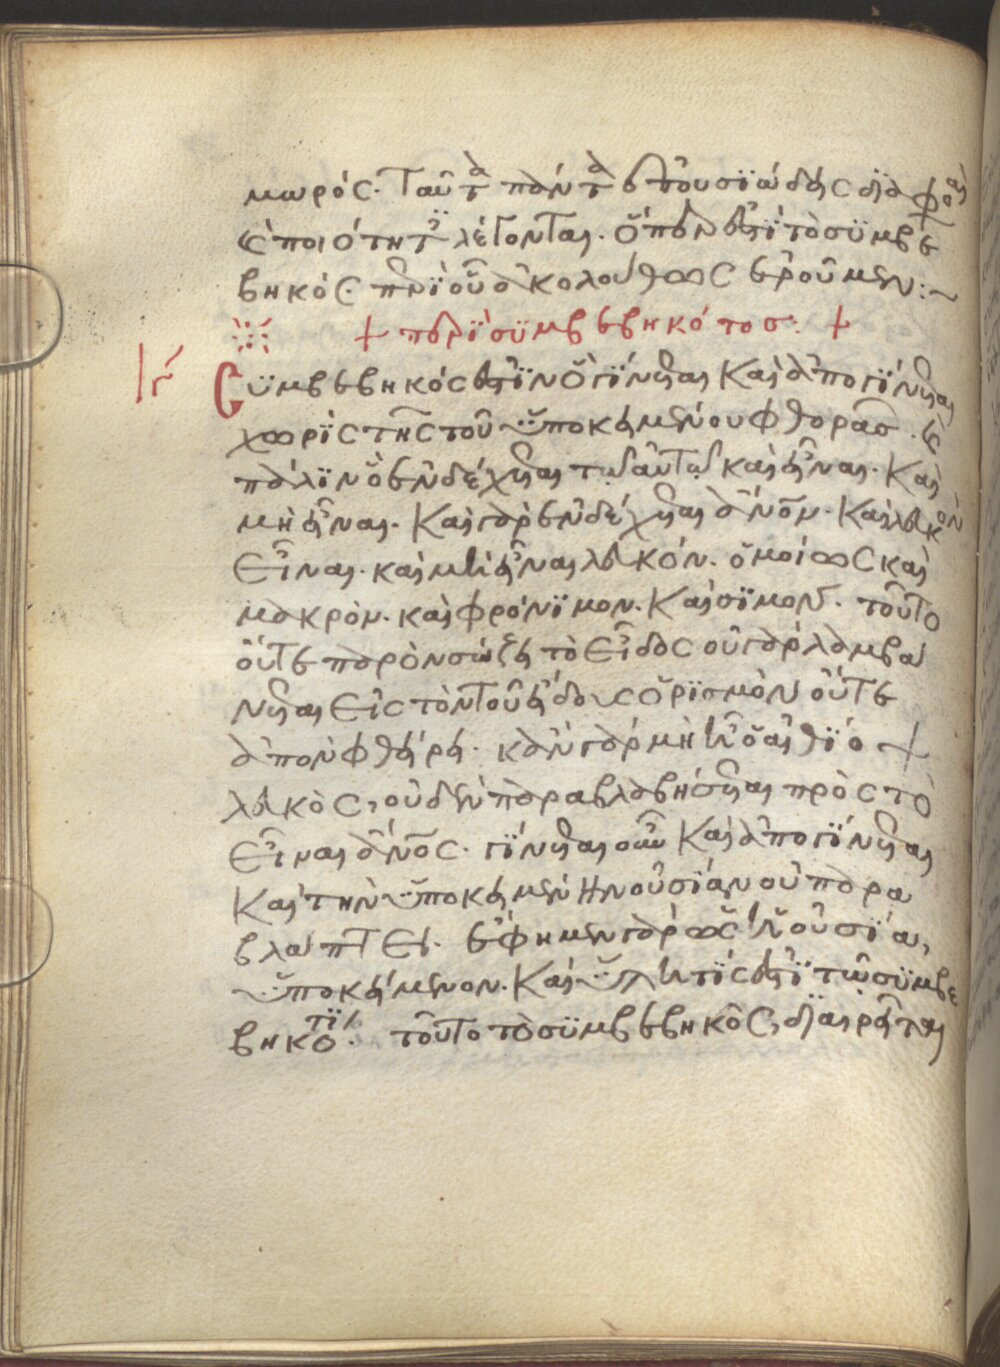 μωρός. Ταῦτα πάντα ἐπουσιώδεις διαφοραὶ
καὶ ποιότητες λέγονται. ὅπέρ ἐστι τὸ συμβε
βηκός. περὶ οὗ ἀκολούθως ἐροῦμεν:~
+ περὶ συμβεβηκότος: +
ιγ Συμβεβηκός ἐστιν ὃ γίνεται καὶ ἀπογίνεται
χωρὶς τῆς τοῦ ὑποκειμένου φθορᾶς. καὶ
πάλιν ὃ ἐνδέχεται τῷ αὐτῷ καὶ εἶναι. καὶ
μὴ εἶναι. καὶ γὰρ ἐνδέχεται ἄνον. καὶ λευκὸν
εἶναι. καὶ μὴ εἶναι λευκόν. ὁμοίως καὶ
μακρόν. καὶ φρόνιμον. καὶ σιμόν. τοῦτο
οὔτε παρὸν σώζει τὸ εἶδος οὐ γὰρ λαμβά
νεται εἰς τὸν τοῦ εἴδους ὁρισμὸν οὔτε
ἀπὸν φθείρει. κἂν γὰρ μὴ ἦ ὁ αἰθίοψ
λευκὸς, οὐδὲν παραβλαβήσεται πρὸς τὸ
εἶναι ἄνος. γίνεται οὖν καὶ ἀπογίνεται
καὶ τὴν ὑποκειμένην οὐσίαν οὐ παρα
βλάπτει. ἔφημεν γὰρ ὡς ἡ οὐσία,
ὑποκείμενον. καὶ ὕλη τίς ἐστι τῶ συμβε
βηκότι. τοῦτο τὸ συμβεβηκὸς, διαιρεῖται